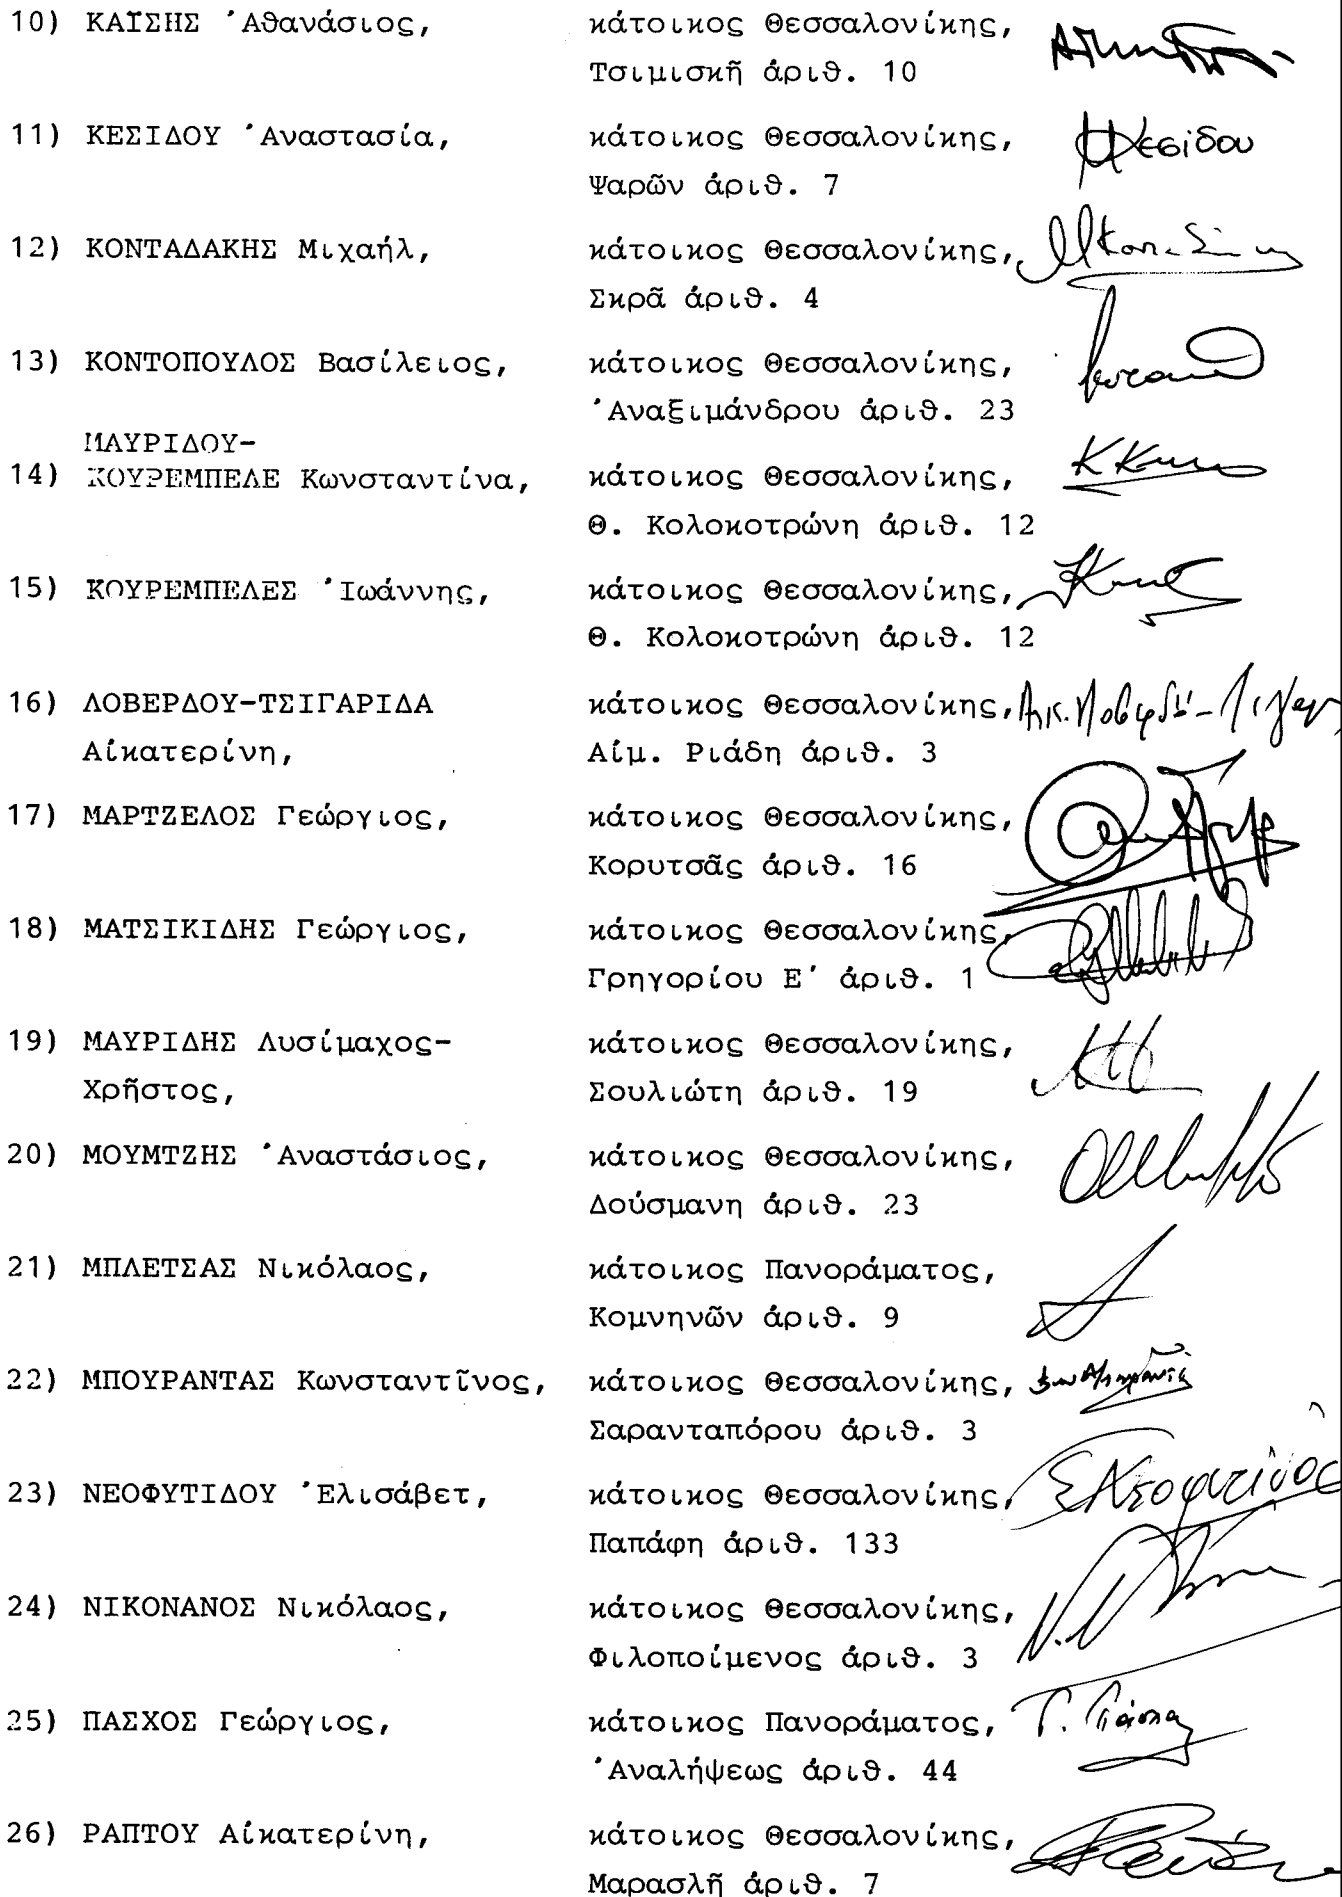 10) ΚΑΪΣΗΣ Ἀθανάσιος, κάτοικος Θεσσαλονίκης,
Τσιμισκῆ ἀριθ. 10
11) ΚΕΣΙΔΟΥ Ἀναστασία, κάτοικος Θεσσαλονίκης, Κεσίδου
Ψαρῶν ἀριθ. 7
12) ΚΟΝΤΑΔΑΚΗΣ Μιχαήλ, κάτοικος Θεσσαλονίκης,
Σκρᾶ ἀριθ. 4
13) ΚΟΝΤΟΠΟΥΛΟΣ Βασίλειος, κάτοικος Θεσσαλονίκης,
Ἀναξιμάνδρου ἀριθ. 23
ΜΑΥΡΙΔΟΥ-
14) ΚΟΥΡΕΜΠΕΛΕ Κωνσταντίνα, κάτοικος Θεσσαλονίκης,
Θ. Κολοκοτρώνη ἀριθ. 12
15) ΚΟΥΡΕΜΠΕΛΕΣ Ἰωάννης, κάτοικος Θεσσαλονίκης,
Θ. Κολοκοτρώνη ἀριθ. 12
16) ΛΟΒΕΡΔΟΥ-ΤΣΙΓΑΡΙΔΑ κάτοικος Θεσσαλονίκης,
Αἰκατερίνη, Αἰμ. Ριάδη ἀριθ. 3
17) ΜΑΡΤΖΕΛΟΣ Γεώργιος, κάτοικος Θεσσαλονίκης,
Κορυτσᾶς ἀριθ. 16
18) ΜΑΤΣΙΚΙΔΗΣ Γεώργιος, κάτοικος Θεσσαλονίκης,
Γρηγορίου Ε΄ ἀριθ. 1
19) ΜΑΥΡΙΔΗΣ Λυσίμαχος- κάτοικος Θεσσαλονίκης,
Χρῆστος, Σουλιώτη ἀριθ. 19
20) ΜΟΥΜΤΖΗΣ Ἀναστάσιος, κάτοικος Θεσσαλονίκης,
Δούσμανη ἀριθ. 23
21) ΜΠΛΕΤΣΑΣ Νικόλαος, κάτοικος Πανοράματος,
Κομνηνῶν ἀριθ. 9
22) ΜΠΟΥΡΑΝΤΑΣ Κωνσταντῖνος, κάτοικος Θεσσαλονίκης,
Σαρανταπόρου ἀριθ. 3
23) ΝΕΟΦΥΤΙΔΟΥ Ἐλισάβετ, κάτοικος Θεσσαλονίκης,
Παπάφη ἀριθ. 133
24) ΝΙΚΟΝΑΝΟΣ Νικόλαος, κάτοικος Θεσσαλονίκης,
Φιλοποίμενος ἀριθ. 3
25) ΠΑΣΧΟΣ Γεώργιος, κάτοικος Πανοράματος,
Ἀναλήψεως ἀριθ. 44
26) ΡΑΠΤΟΥ Αἰκατερίνη, κάτοικος Θεσσαλονίκης,
Μαρασλῆ ἀριθ. 7